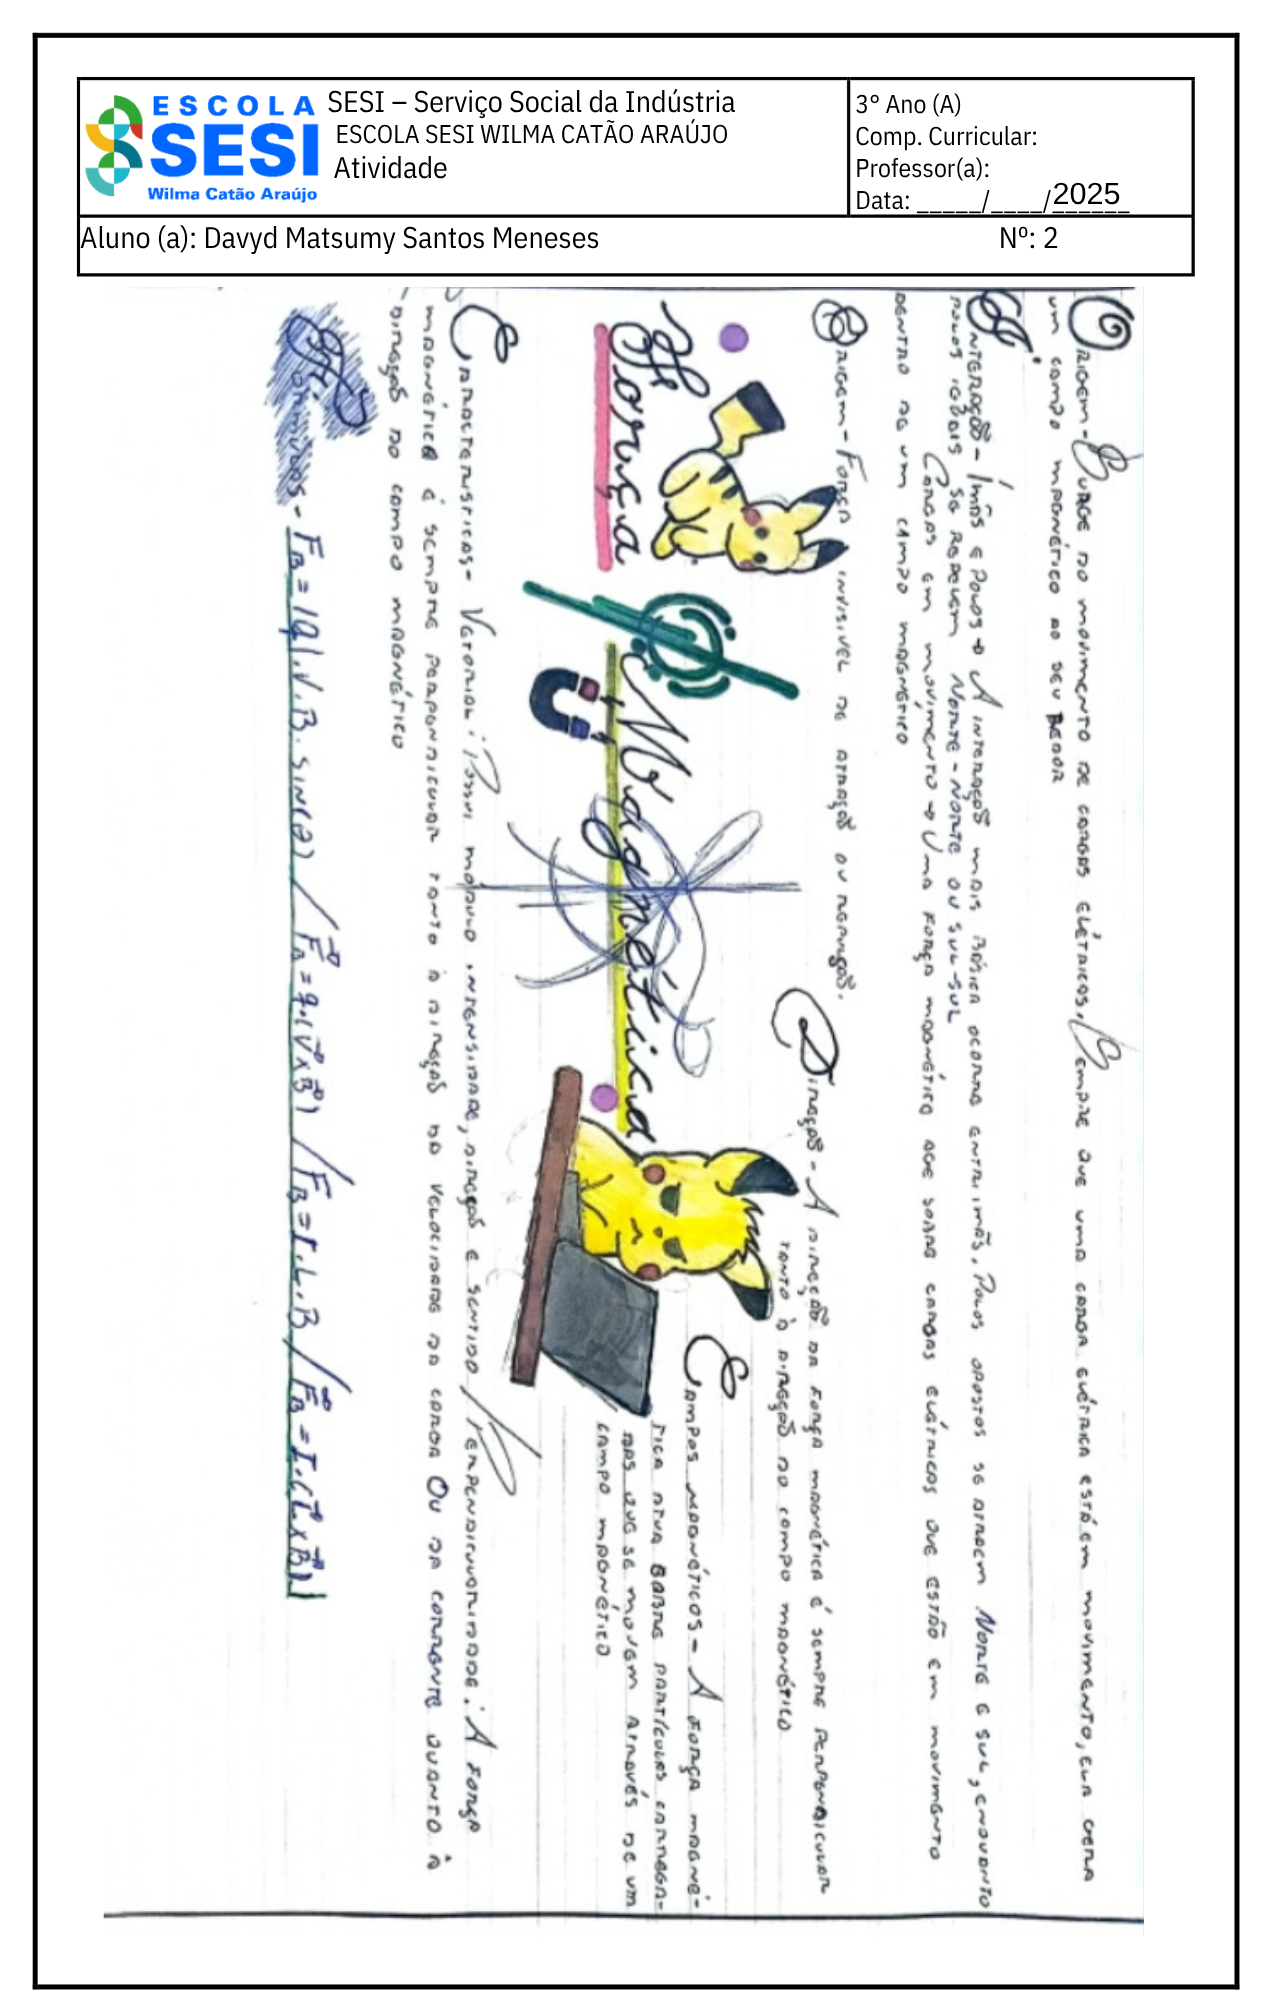 ESCOLA
SESI
Wilma Catão Araújo
SESI – Serviço Social da Indústria
ESCOLA SESI WILMA CATÃO ARAÚJO
Atividade
3° Ano (A)
Comp. Curricular:
Professor(a):
Data: _____/____/2025
Aluno (a): Davyd Matsumy Santos Meneses Nº: 2
Origem - Surge do movimento de cargas elétricas. Sempre que uma carga elétrica está em movimento, ela gera
um campo magnético ao seu redor
Interação - Ímãs e Polos → A interação mais básica ocorre entre ímãs. Polos opostos se atraem Norte e Sul, enquanto
polos iguais se repelem Norte - Norte ou Sul-Sul
Cargas em movimento → Uma força magnética age sobre cargas elétricas que estão em movimento
dentro de um campo magnético
Origem - Força invisível de atração ou repulsão.
Direção - A direção da força magnética é sempre perpendicular
tanto à direção do campo magnético
Força Magnética
Campos magnéticos - A força magné-
tica atua sobre partículas carrega-
das que se movem através de um
campo magnético
Características - Vetorial: Possui módulo intensidade, direção e sentido / Perpendicularidade: A força
magnética é sempre perpendicular tanto à direção da velocidade da carga Ou da corrente quanto à
direção do campo magnético
Fórmulas - F_B = |q|.V.B.sin(θ) / F⃗_B = q.(V⃗xB⃗) / F_B = I.L.B / F⃗_B = I.(L⃗xB⃗)